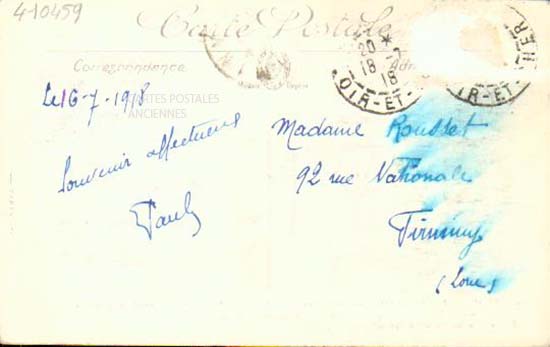 410459
Carte Postale
Correspondance
Le 16-7-1918
CARTES POSTALES
ANCIENNES
Souvenir affectueux
Madame Rousset
92 rue Nationale
Firminy
(Loire)
20 *
18 -7
18
OIR-ET-
IR-ET-
HER